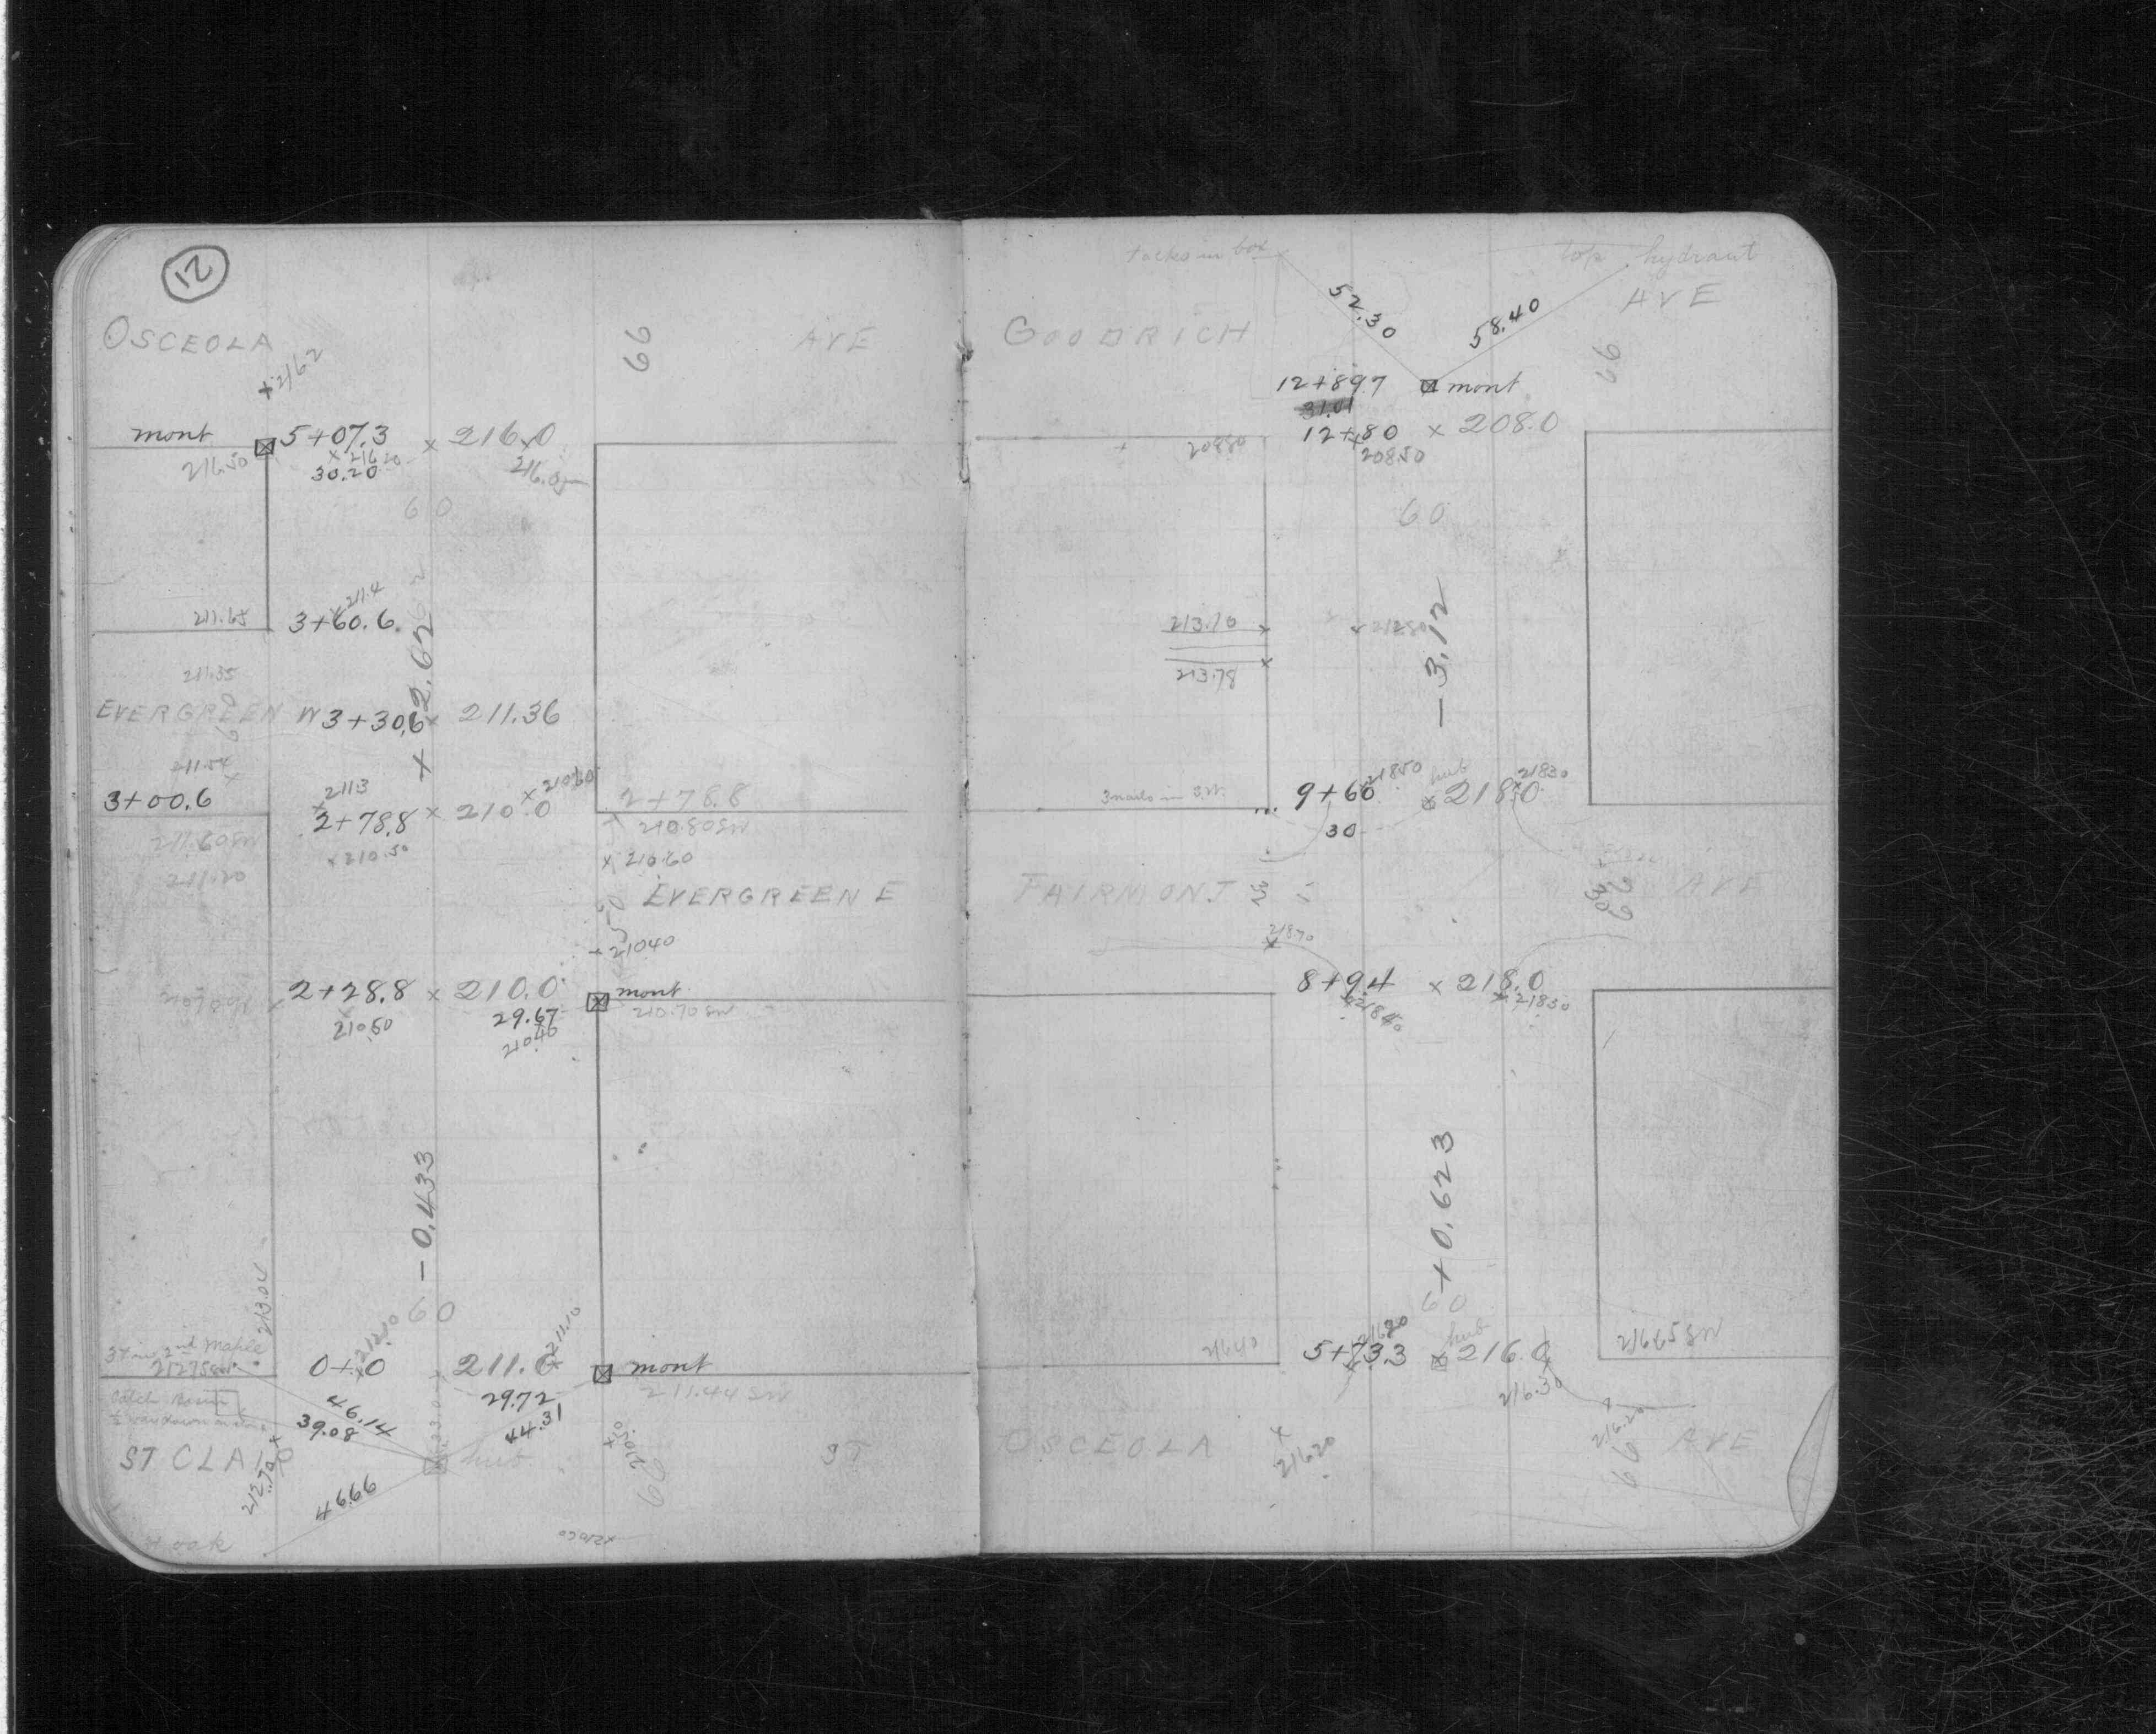 12
OSCEOLA AVE
66
+ 216.2
mont 5+07.3 x 216.0
216.50 x 216.20
30.20
60
211.4
211.65 3+60.6
+ 2.62
211.35
EVERGREEN W 3+30.6 x 211.36
60
211.54
3+00.6
211.3 x 210.60
2+78.8 x 210.0 2+78.8
211.60 SW x 210.50 210.80 SW
211.20 x 210.60
EVERGREEN E
50
210.40
2+28.8 x 210.0 mont
210.50 29.67 210.70 SW
210.40
- 0.433
213.04
60
212.10 x 211.10
212.75 SW 0+0 211.0 mont
Catch Basin 46.14 29.72 211.44 SW
39.08 44.31
ST. CLAIR hub ST
212.70 210.50 66
46.66
oak
x 210.60
tacks in box top hydrant
GOODRICH AVE
52.30 58.40
66
12+89.7 mont
31.01
12+80 x 208.0
208.80 208.50
60
213.10 x 212.80
213.78
- 3.12
3 nails in 9+60 218.50 hub 218.0 218.30
30
FAIRMONT AVE
66
30
218.70
8+94 x 218.0
218.40 218.50
+ 0.623
60
216.40 5+73.3 216.20 hub 216.0 216.65 SW
216.30
216.20 216.20
OSCEOLA AVE
66